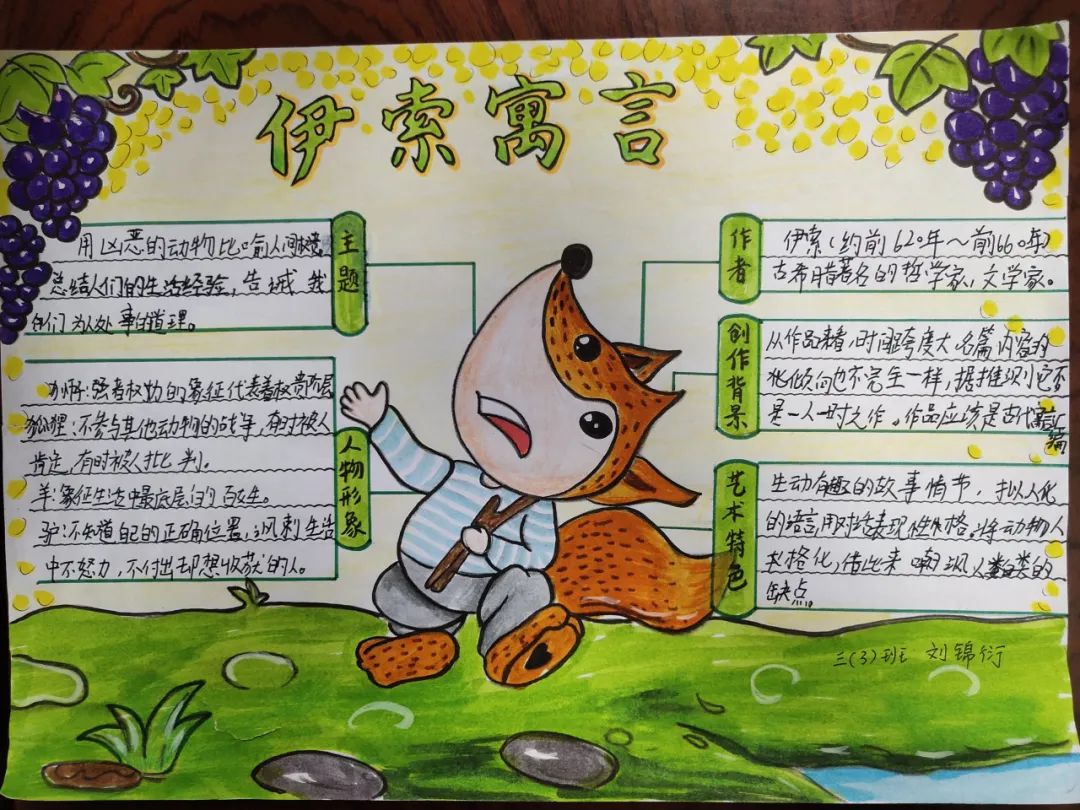 伊索寓言
主题
用凶恶的动物比喻人间
总结人们的生活经验，告诫我
们为人处事的道理。
人物形象
狮子：强者权势的象征代表着权贵
狐狸：不参与其他动物的战争，有时被人
肯定，有时被人批判。
羊：象征生活中最底层的百姓。
驴：不知道自己的正确位置，讽刺生活
中不努力，不付出却想收获的人。
作者
伊索（约前620年～前560年）
古希腊著名的哲学家、文学家。
创作背景
从作品来看，时间跨度大名篇内容的
倾向也不完全一样，据推测它不
是一人一时之作。作品应该是古代
编
艺术特色
生动有趣的故事情节，拟人化
的语言，用对话表现性格。将动物人
格化，借此来嘲讽人类的
缺点
三(3)班 刘锦衍